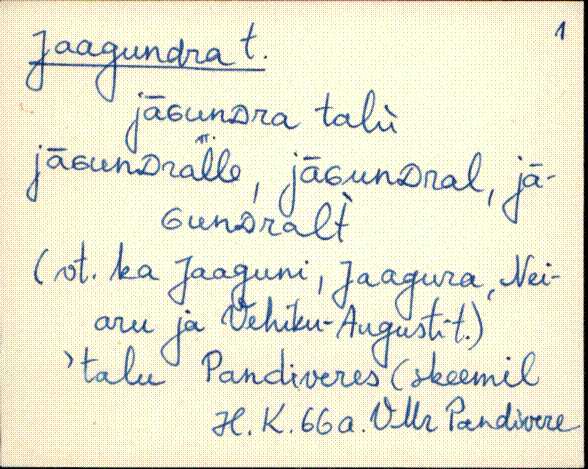 Jaagundra t. 1
jāɢunᴅra talù
jāɢunᴅral̄le, jāɢunᴅral, jā-
ɢunᴅralt̀
(vt. ka Jaaguni, Jaagura, Nei-
aru ja Vehiku-Augusti-t.)
'talu Pandiveres (skeemil
H. K. 66a. VMr Pandivere